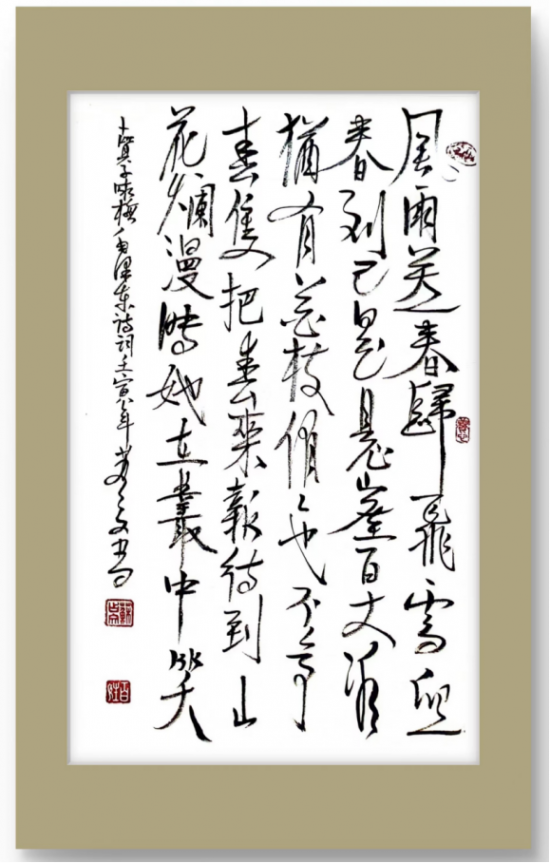 風雨送春歸飛雪迎
春到已是懸崖百丈冰
猶有花枝俏々也不爭
春隻把春來報待到山
花爛漫時她在叢中笑
卜算子咏梅毛澤东诗词壬寅年书